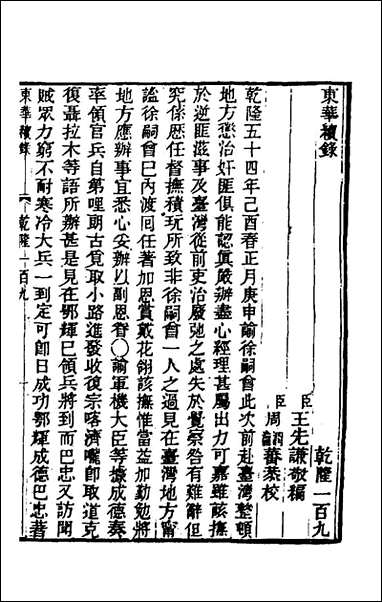 東華續錄　乾隆一百九
臣王先謙敬編
臣周瀹蕃恭校
乾隆五十四年己酉春正月庚申諭徐嗣曾此次前赴臺灣整頓
地方懲治奸匪俱能認眞嚴辦盡心經理甚屬出力可嘉雖該撫
於逆匪滋事及臺灣從前吏治廢弛之處失於覺察咎有難辭但
究係歷任督撫積玩所致非徐嗣曾一人之過見在臺灣地方甯
謐徐嗣曾巳內渡囘任著加恩賞戴花翎該撫惟當益加勤勉將
地方應辦事宜悉心妥辦以副恩眷○諭軍機大臣等據成德奏
率領官兵自第哩朗古覓取小路進發收復宗喀濟嚨卽取道克
復聶拉木等語所辦甚是見在鄂輝巳領兵將到而巴忠又訪聞
賊眾力窮不耐寒冷大兵一到定可卽日成功鄂輝成德巴忠著
東華續錄　乾隆一百九